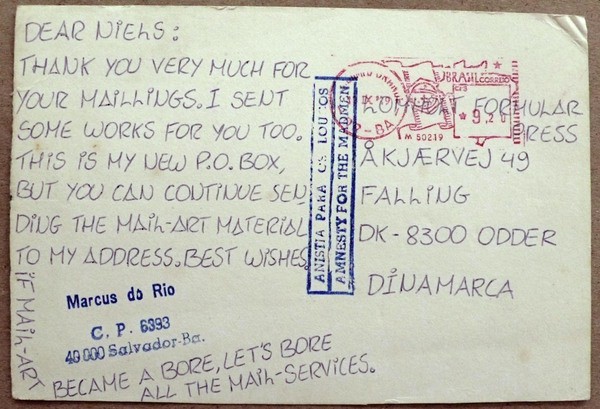 DEAR NIELS:
THANK YOU VERY MUCH FOR
YOUR MAILLINGS. I SENT
SOME WORKS FOR YOU TOO.
THIS IS MY NEW P.O. BOX,
BUT YOU CAN CONTINUE SEN
DING THE MAIL-ART MATERIAL
TO MY ADDRESS. BEST WISHES.
IF MAIL-ART
BECAME A BORE, LET'S BORE
ALL THE MAIL-SERVICES.
Marcus do Rio
C. P. 6393
40 000 Salvador-Ba.
ANISTIA PARA
AMNESTY FOR THE MADMEN
BRASIL CORREIO
920
M 50219
FORMULAR
PRESS
ÅKJÆRVEJ 49
FALLING
DK-8300 ODDER
DINAMARCA